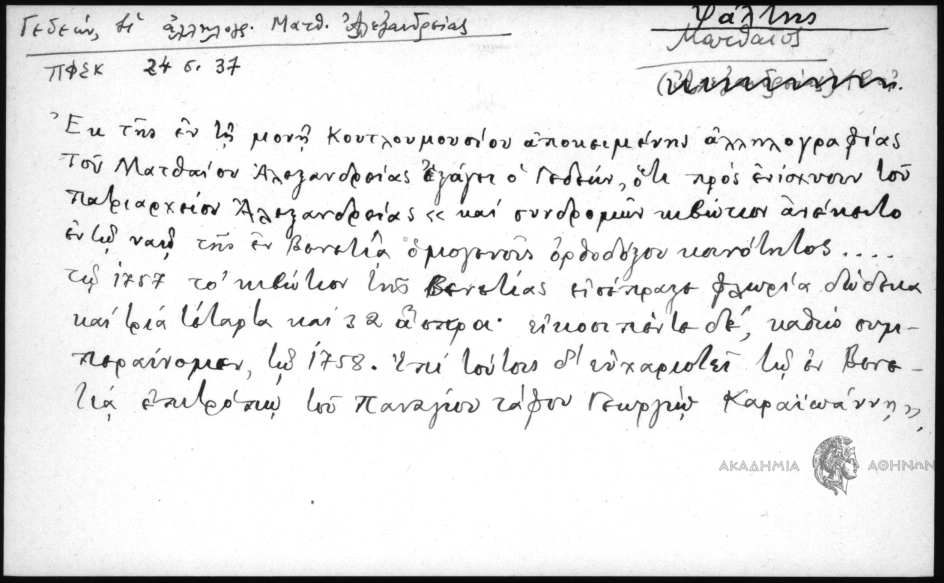 Γεδεών, ἡ ἀλληλογρ. Ματθ. Ἀλεξανδρείας
Ψάλτης
Ματθαῖος
ΠΦΣΚ 24 σ. 37
Ἐκ τῆς ἐν τῇ μονῇ Κουτλουμουσίου ἀποκειμένης ἀλληλογραφίας
τοῦ Ματθαίου Ἀλεξανδρείας ἐξάγει ὁ Γεδεών, ὅτι πρὸς ἐνίσχυσιν τοῦ
Πατριαρχείου Ἀλεξανδρείας « καὶ συνδρομῶν κιβώτιον ἀπέκειτο
ἐν τῷ ναῷ τῆς ἐν Βενετίᾳ ὁμογενοῦς ὀρθοδόξου κοινότητος....
τῷ 1757 τὸ κιβώτιον τῆς Βενετίας εἰσέπραξε φλωρία δώδεκα
καὶ τρία τέταρτα καὶ 32 ἄσπρα· εἰκοσιπέντε δέ, καθὼ συμ-
περαίνομεν, τῷ 1758. Ἐπὶ τούτοις δ' εὐχαριστεῖ τῷ ἐν Βενε-
τίᾳ ἐπιτρόπῳ τοῦ Παναγίου τάφου Γεωργίῳ Καραϊωάννῃ »,
ΑΚΑΔΗΜΙΑ ΑΘΗΝΩΝ